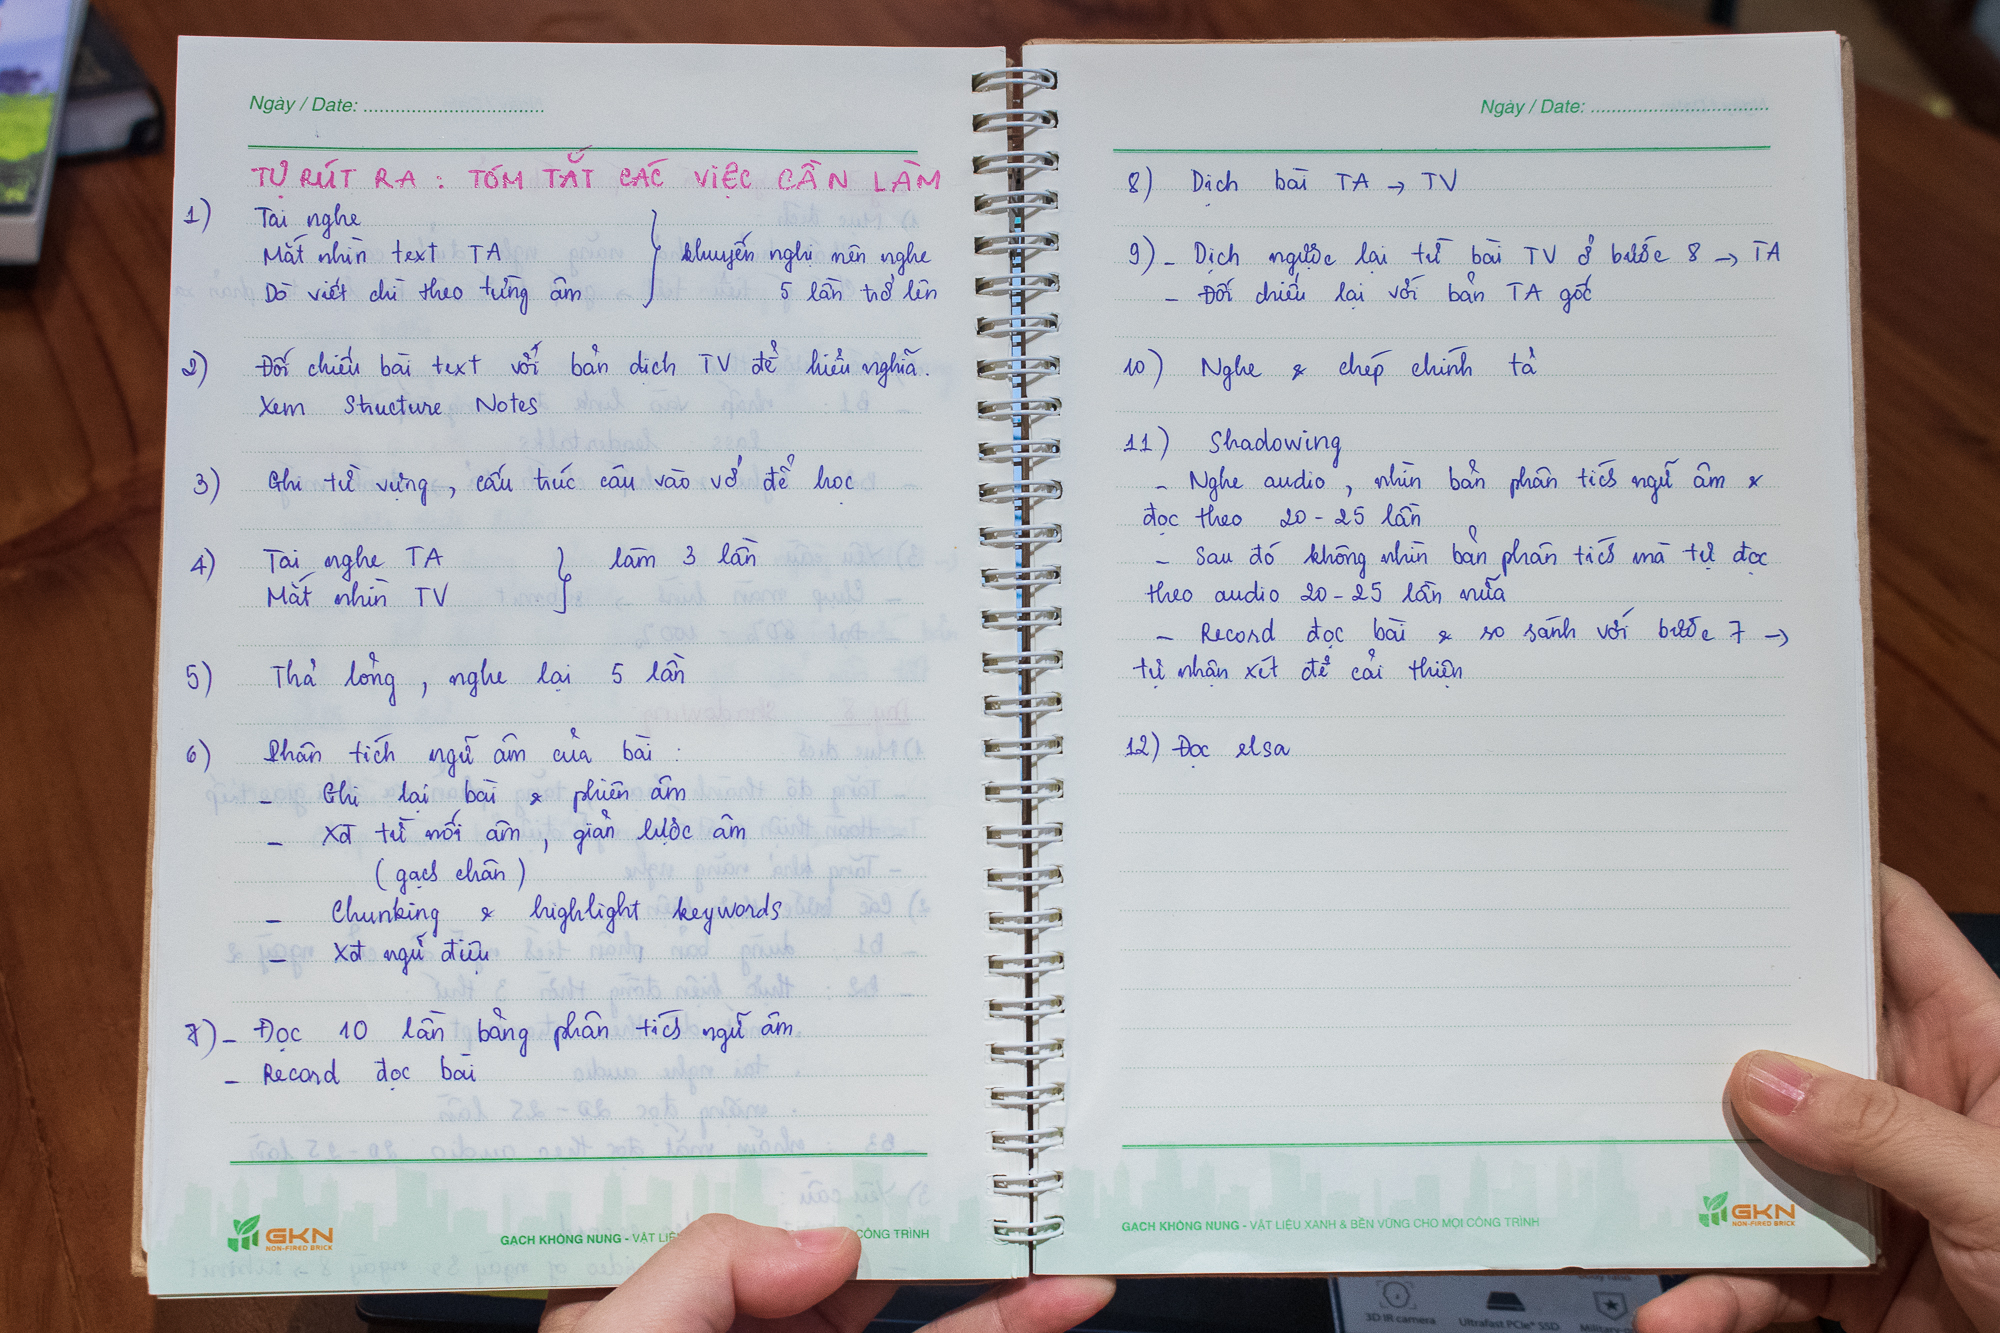 Ngày / Date: ................................
TỰ RÚT RA : TÓM TẮT CÁC VIỆC CẦN LÀM
1) Tai nghe
Mắt nhìn text TA
Dò viết chì theo từng âm
khuyến nghị nên nghe
5 lần trở lên
2) Đối chiếu bài text với bản dịch TV để hiểu nghĩa.
Xem Structure Notes
3) Ghi từ vựng, cấu trúc câu vào vở để học
4) Tai nghe TA
Mắt nhìn TV
làm 3 lần
5) Thả lỏng, nghe lại 5 lần
6) Phân tích ngữ âm của bài :
- Ghi lại bài & phiên âm
- Xđ từ nối âm, giản lược âm
(gạch chân)
- Chunking & highlight keywords
- Xđ ngữ điệu
7) - Đọc 10 lần bằng phân tích ngữ âm
- Record đọc bài
GKN
NON-FIRED BRICK
GẠCH KHÔNG NUNG - VẬT LIỆ CÔNG TRÌNH
Ngày / Date: ................................
8) Dịch bài TA → TV
9) - Dịch ngược lại từ bài TV ở bước 8 → TA
- Đối chiếu lại với bản TA gốc
10) Nghe & chép chính tả
11) Shadowing
- Nghe audio, nhìn bản phân tích ngữ âm &
đọc theo 20 - 25 lần
- Sau đó không nhìn bản phân tích mà tự đọc
theo audio 20 - 25 lần nữa
- Record đọc bài & so sánh với bước 7 →
tự nhận xét để cải thiện
12) Đọc elsa
GẠCH KHÔNG NUNG - VẬT LIỆU XANH & BỀN VỮNG CHO MỌI CÔNG TRÌNH
GKN
NON-FIRED BRICK
3D IR camera
Ultrafast PCIe® SSD